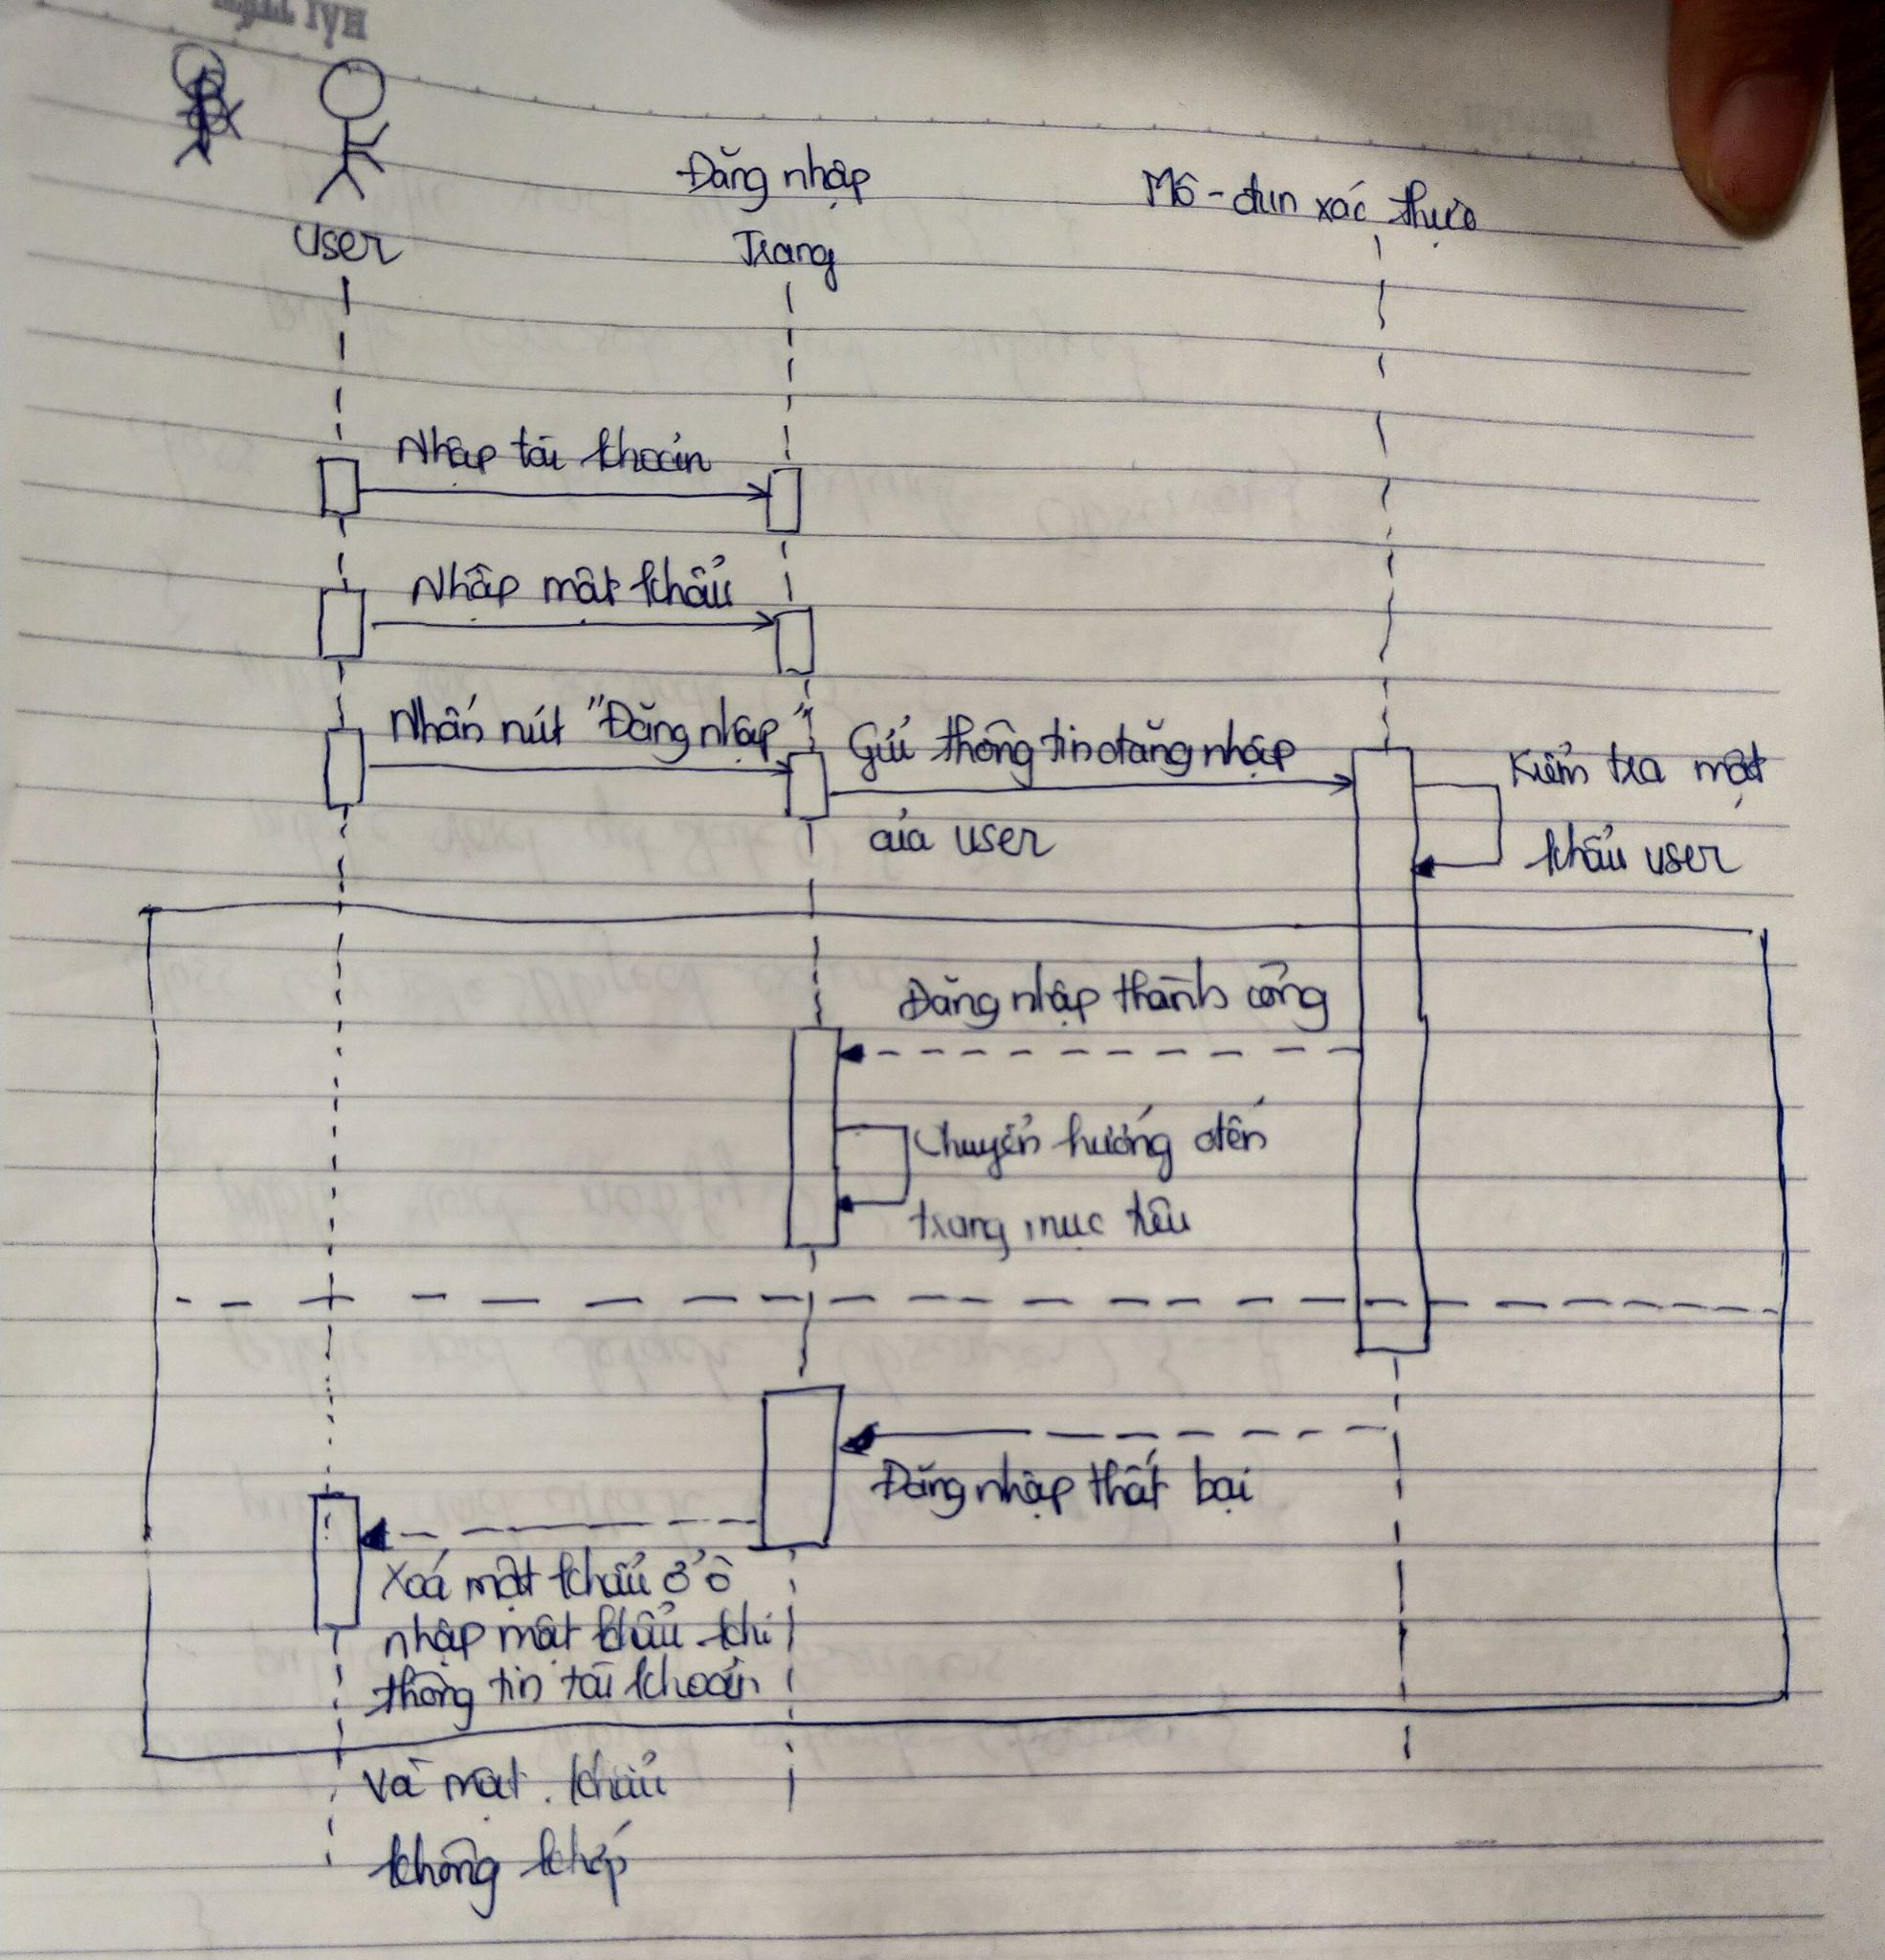 User
Đăng nhập
Trang
Mô-đun xác thực
Nhập tài khoản
Nhập mật khẩu
Nhấn nút "Đăng nhập"
Gửi thông tin đăng nhập
của user
Kiểm tra mật
khẩu user
Đăng nhập thành công
Chuyển hướng đến
trang mục tiêu
Đăng nhập thất bại
Xoá mật khẩu ở ô
nhập mật khẩu khi
thông tin tài khoản
và mật khẩu
không khớp